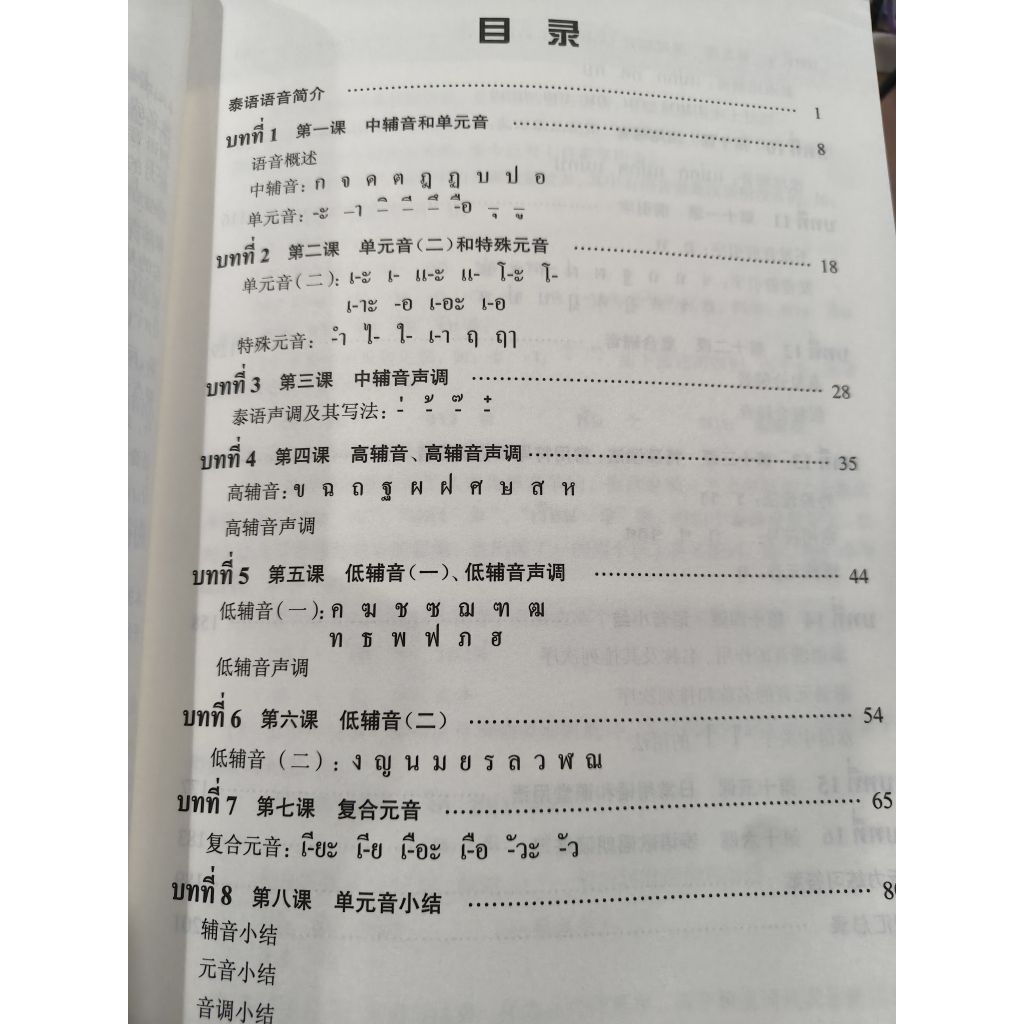 目 录
泰语语音简介 …… 1
บทที่ 1 第一课 中辅音和单元音 …… 8
语音概述
中辅音：ก จ ด ต ฎ ฏ บ ป อ
单元音：-ะ -า -ิ -ี -ึ -ือ -ุ -ู
บทที่ 2 第二课 单元音（二）和特殊元音 …… 18
单元音（二）：เ-ะ เ- แ-ะ แ- โ-ะ โ-
เ-าะ -อ เ-อะ เ-อ
特殊元音：-ำ ไ- ใ- เ-า ฤ ฤๅ
บทที่ 3 第三课 中辅音声调 …… 28
泰语声调及其写法：-่ -้ -๊ -๋
บทที่ 4 第四课 高辅音、高辅音声调 …… 35
高辅音：ข ฉ ถ ฐ ผ ฝ ศ ษ ส ห
高辅音声调
บทที่ 5 第五课 低辅音（一）、低辅音声调 …… 44
低辅音（一）：ค ฆ ช ซ ฌ ฑ ฒ
ท ธ พ ฟ ภ ฮ
低辅音声调
บทที่ 6 第六课 低辅音（二） …… 54
低辅音（二）：ง ญ น ม ย ร ล ว ฬ ณ
บทที่ 7 第七课 复合元音 …… 65
复合元音：เ-ียะ เ-ีย เ-ือะ เ-ือ -ัวะ -ัว
บทที่ 8 第八课 单元音小结 ……
辅音小结
元音小结
音调小结